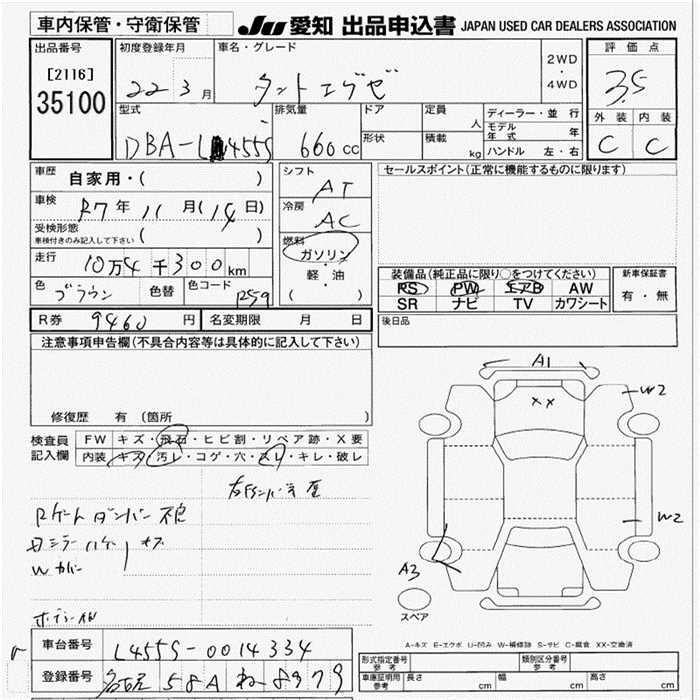 車内保管・守衛保管
JU 愛知 出品申込書 JAPAN USED CAR DEALERS ASSOCIATION
出品番号
[2116]
35100
初度登録年月
22 3月
車名・グレード
タントエグゼ
2WD
・
4WD
評価点
3.5
外装 内装
C C
型式
DBA-L455S
排気量
660cc
ドア
形状
定員
人
積載
kg
ディーラー・並行
モデル年式 年
ハンドル 左・右
車歴
自家用・( )
車検
R7年 11月(14日)
受検形態
車検付きのみ記入して下さい ( )
走行
10万4千300km
色
ブラウン
色替
色コード
シフト
AT
冷房
AC
燃料
ガソリン
・
軽・油
( )
セールスポイント(正常に機能するものに限ります)
装備品(純正品に限り○をつけてください)
PS PW エアB AW
SR ナビ TV カワシート
新車保証書
有・無
R券 9460円
名変期限 月 日
後日品
注意事項申告欄(不具合内容等は具体的に記入して下さい)
修復歴 有(箇所
検査員記入欄
FW キズ・飛石・ヒビ割・リペア跡・X要
内装 キズ・汚レ・コゲ・穴・スレ・キレ・破レ
Rゲートダンパー不良
Wカバー
A1
XX
W2
W2
A3
スペア
A-キズ E-エクボ U-凹み W-補修跡 S-サビ C-腐食 XX-交換済
車台番号
L455S-0014334
登録番号
名古屋 58A ね-8979
型式指定番号
参考
類別区分番号
参考
車庫証明用
参考
長さ cm
幅 cm
高さ cm